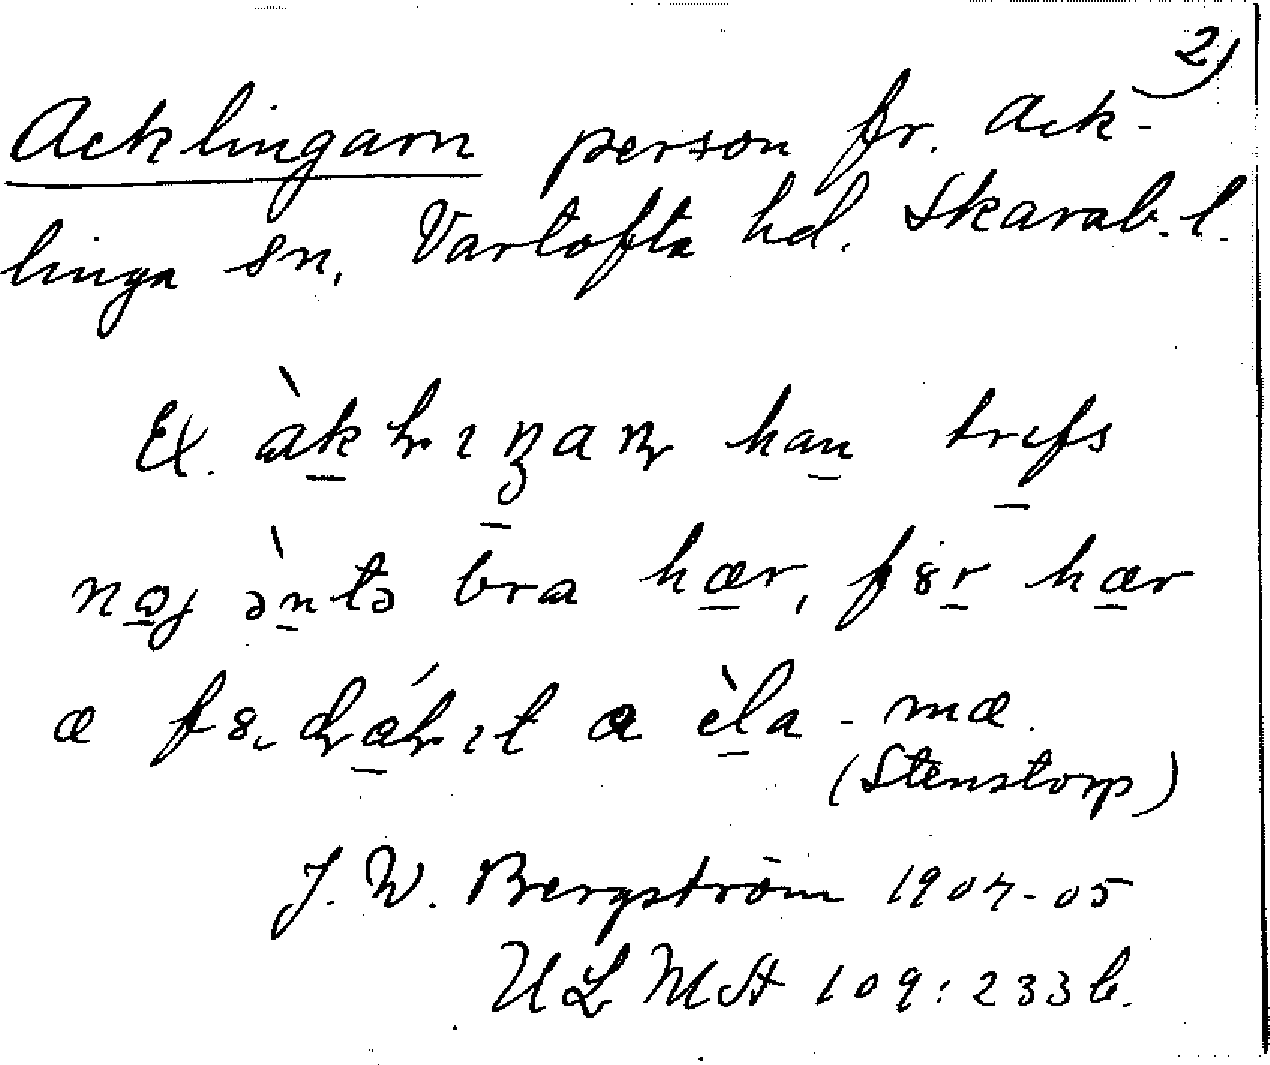 2)
Acklingarn person fr. Ack-
linga sn, Vartofta hd. Skarab. l.
Ex. àklıŋaɳ han trefs
nɔj ə̀ntə bra hær, fɞr hær
æ fɞɖǽlıt a èla - mæ.
(Stenstorp)
J. W. Bergström 1904-05
ULMA 109:233 b.